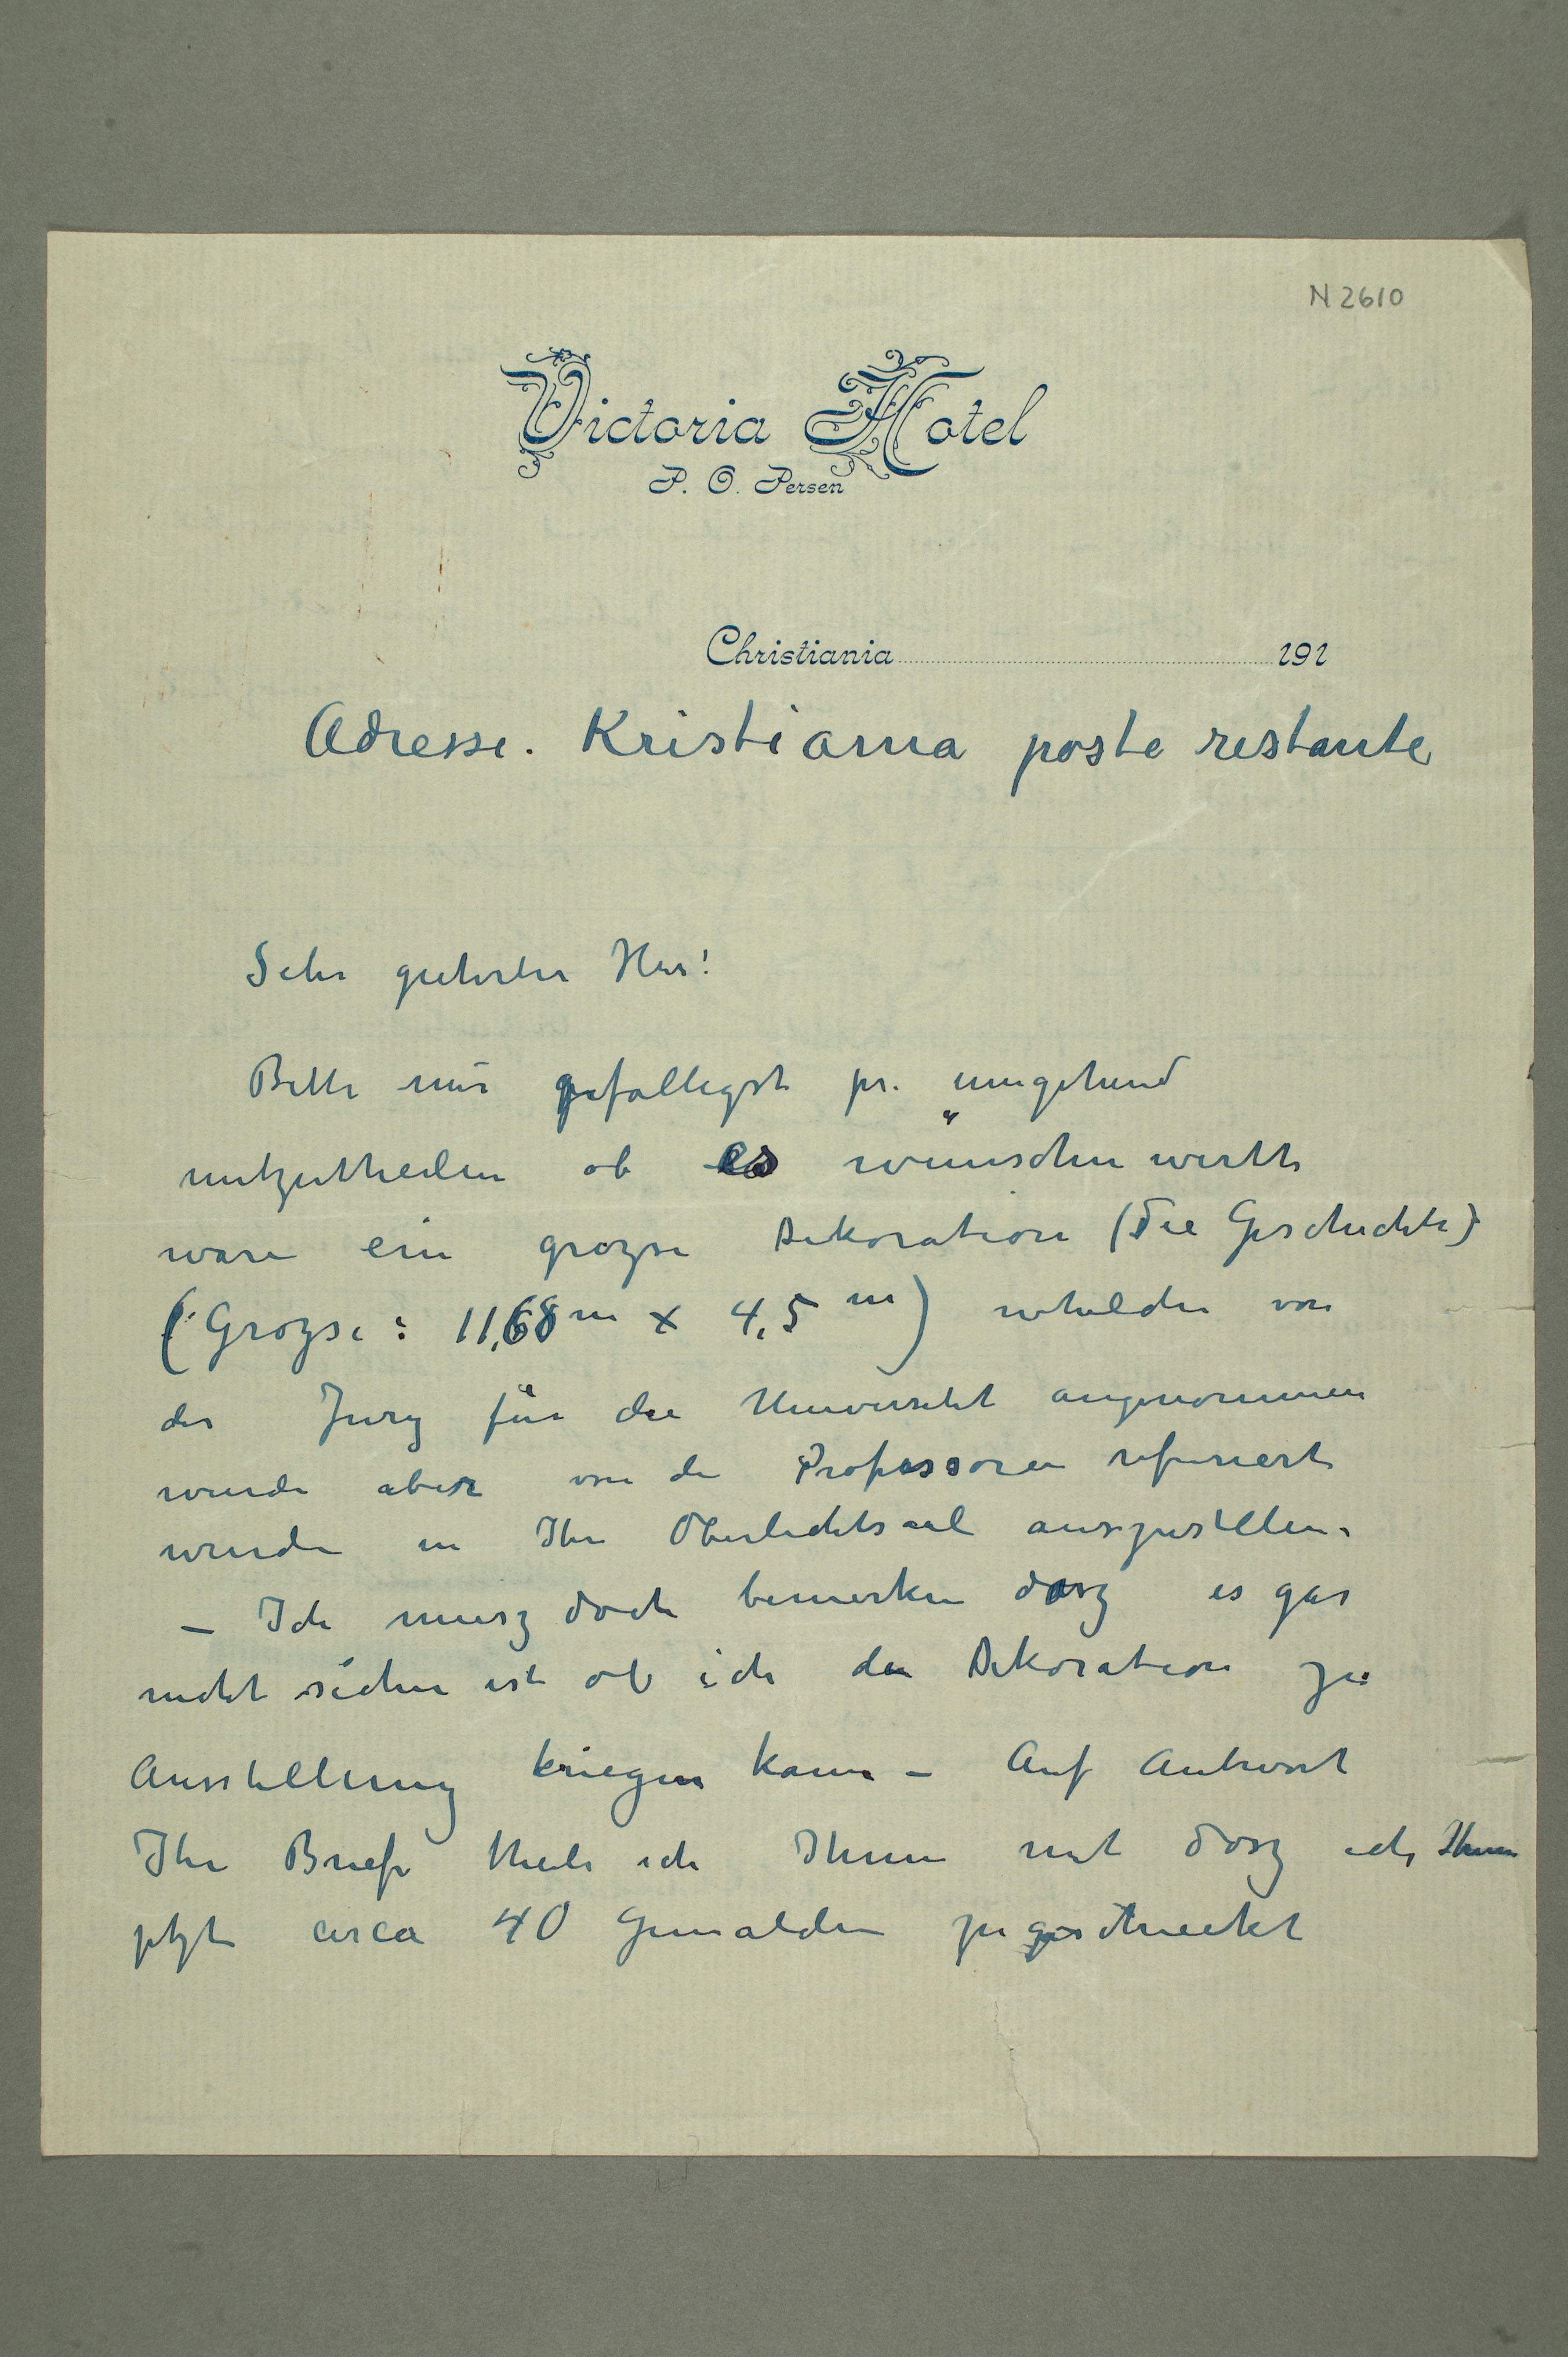 N 2610
Victoria Hotel
P. O. Persen
Christiania 191
Adresse. Kristiania poste restante
Sehr geehrter Herr!
Bitte mir gefälligst pr. umgehend
mitzutheilen ob es wünschenwerth
ware ein grozse Dekoration (Die Geschichte)
(Grozse: 11,68 m x 4,5 m) whelche von
der Jury für die Universitet angenommen
wurde aber von de Professoren refusiert
wurde in Ihr Oberlichtsaal auszustellen.
– Ich musz doch bemerken dasz es gar
nicht sicher ist ob ich die Dekoration zu
Ausstellung kriegen kann – Auf Antwort
Ihr Briefe theile ich Ihnen mit dasz ich Ihnen
jetzt circa 40 Gemälden zugeschickt